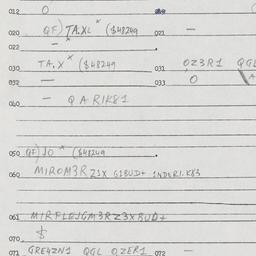 012 O
020 QF) TA.XL* ($48249 021 —
022 —
030 TA.X* ($48249 031 OZ3R1 QGL
032 — 033 O
040 — Q A R1K81
050 QF) JO* ($48249
060 MIROM3RZ1X G1BUD+ 1NDER1.K83
061 MIRFLEJGM3RZ3XBUD+
070 $
071 GRE4ZN1 QGL OZER1 072 —